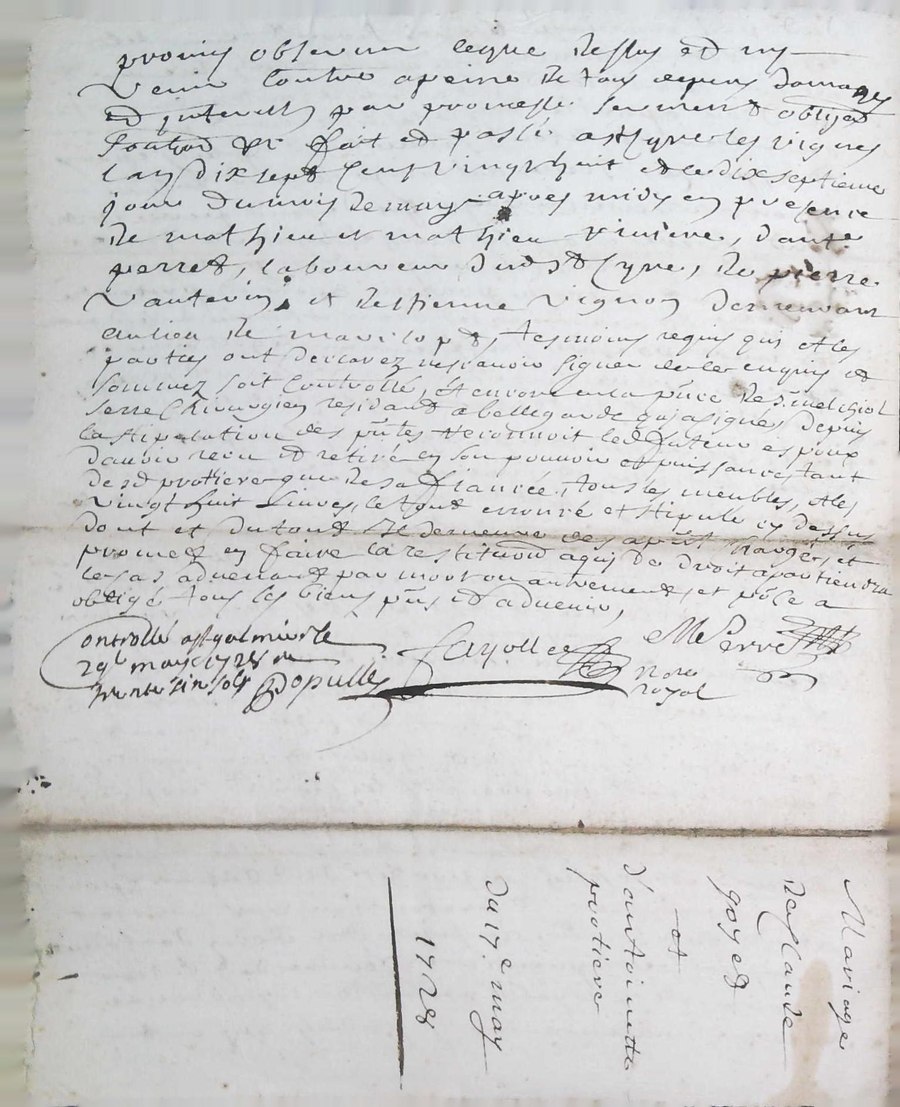 promis observer ce que dessus et ny
venir contre a peine de tous depens domages
et interests par promesse serment obligaon
soubon &c fait et passé a St Cyr les vignes
lan dix sept cent vingt huit et le dix septieme
jour du mois de may apres midy en presence
de mathieu et mathieu riviere, dante
perret, laboureur dud St Cyre, de pierre
vauterin, et destienne vignon demeurant
de temoins requis qui et les
parties ont declarez ne scavoir signer de ce enquis et
sommez soit controllé, et encore en la pnce de Sr melchiol
serre Chirurgien residant a bellegarde qui a signé, depuis
la stipulation des pntes reconnoit led futeur epoux
davoir receu et retiré en son pouvoir et puissance tant
desd protiere que de sa fiancée, tous les meubles, et les
vingt huit Livres, le tout enoncé et stipulé cy dessus
dont et du tout Il demeure chargé, et
promet en faire la restitution a qui de droit apartiendra
le cas advenant par mort ou autrement, et pole a
obligé tous ses biens pns et advenir,
Controllé a St galmier le
29e may 1728 R
trente cinq sols Dopuille
fayolle
M Serre
Nore
royal
Mariage
de Claude
goyet
et
d'antoinette
protiere
du 17e may
1728